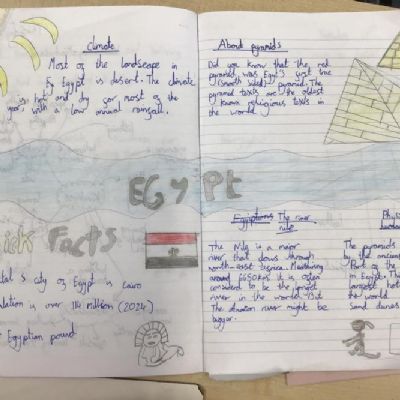 climate
Most of the landscape in
Egypt is desert. The climate
is hot and dry for most of the
year, with a low annual rainfall.
About pyramids
Did you know that the red
pyramid was Egypt's first true
(smooth sided) pyramid. The
pyramid texts are the oldest
known religious texts in
the world.
EGYPt
ick Facts
tal's city of Egypt is cairo
ulation is over 114 million (2024)
Egyptian pound
The river
nile
The Nile is a major
river that flows through
north-east Africa. Measuring
around 6650km it is often
considered to be the longest
river in the world. But
The amazon river might be
bigger.
Physic
The pyramids
by the ancien
Part of the
in Egypt. The
largest hot
the world
sand dunes